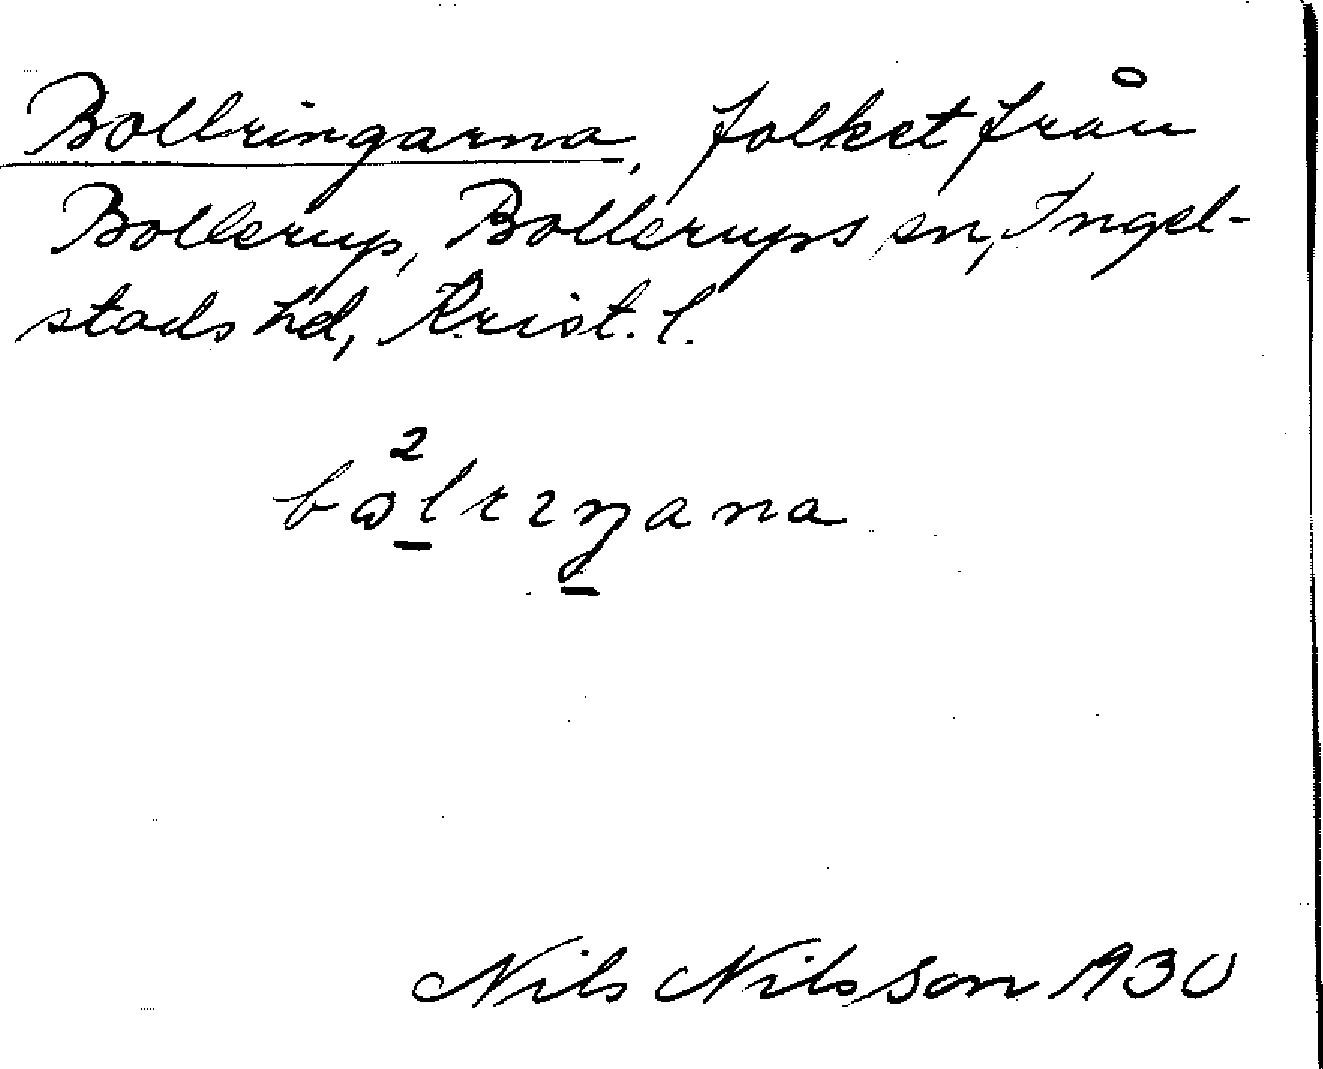 Bollringarna, folket från
Bollerup, Bollerups sn, Ingel-
stads hd, Krist. l.
Nils Nilsson 1930